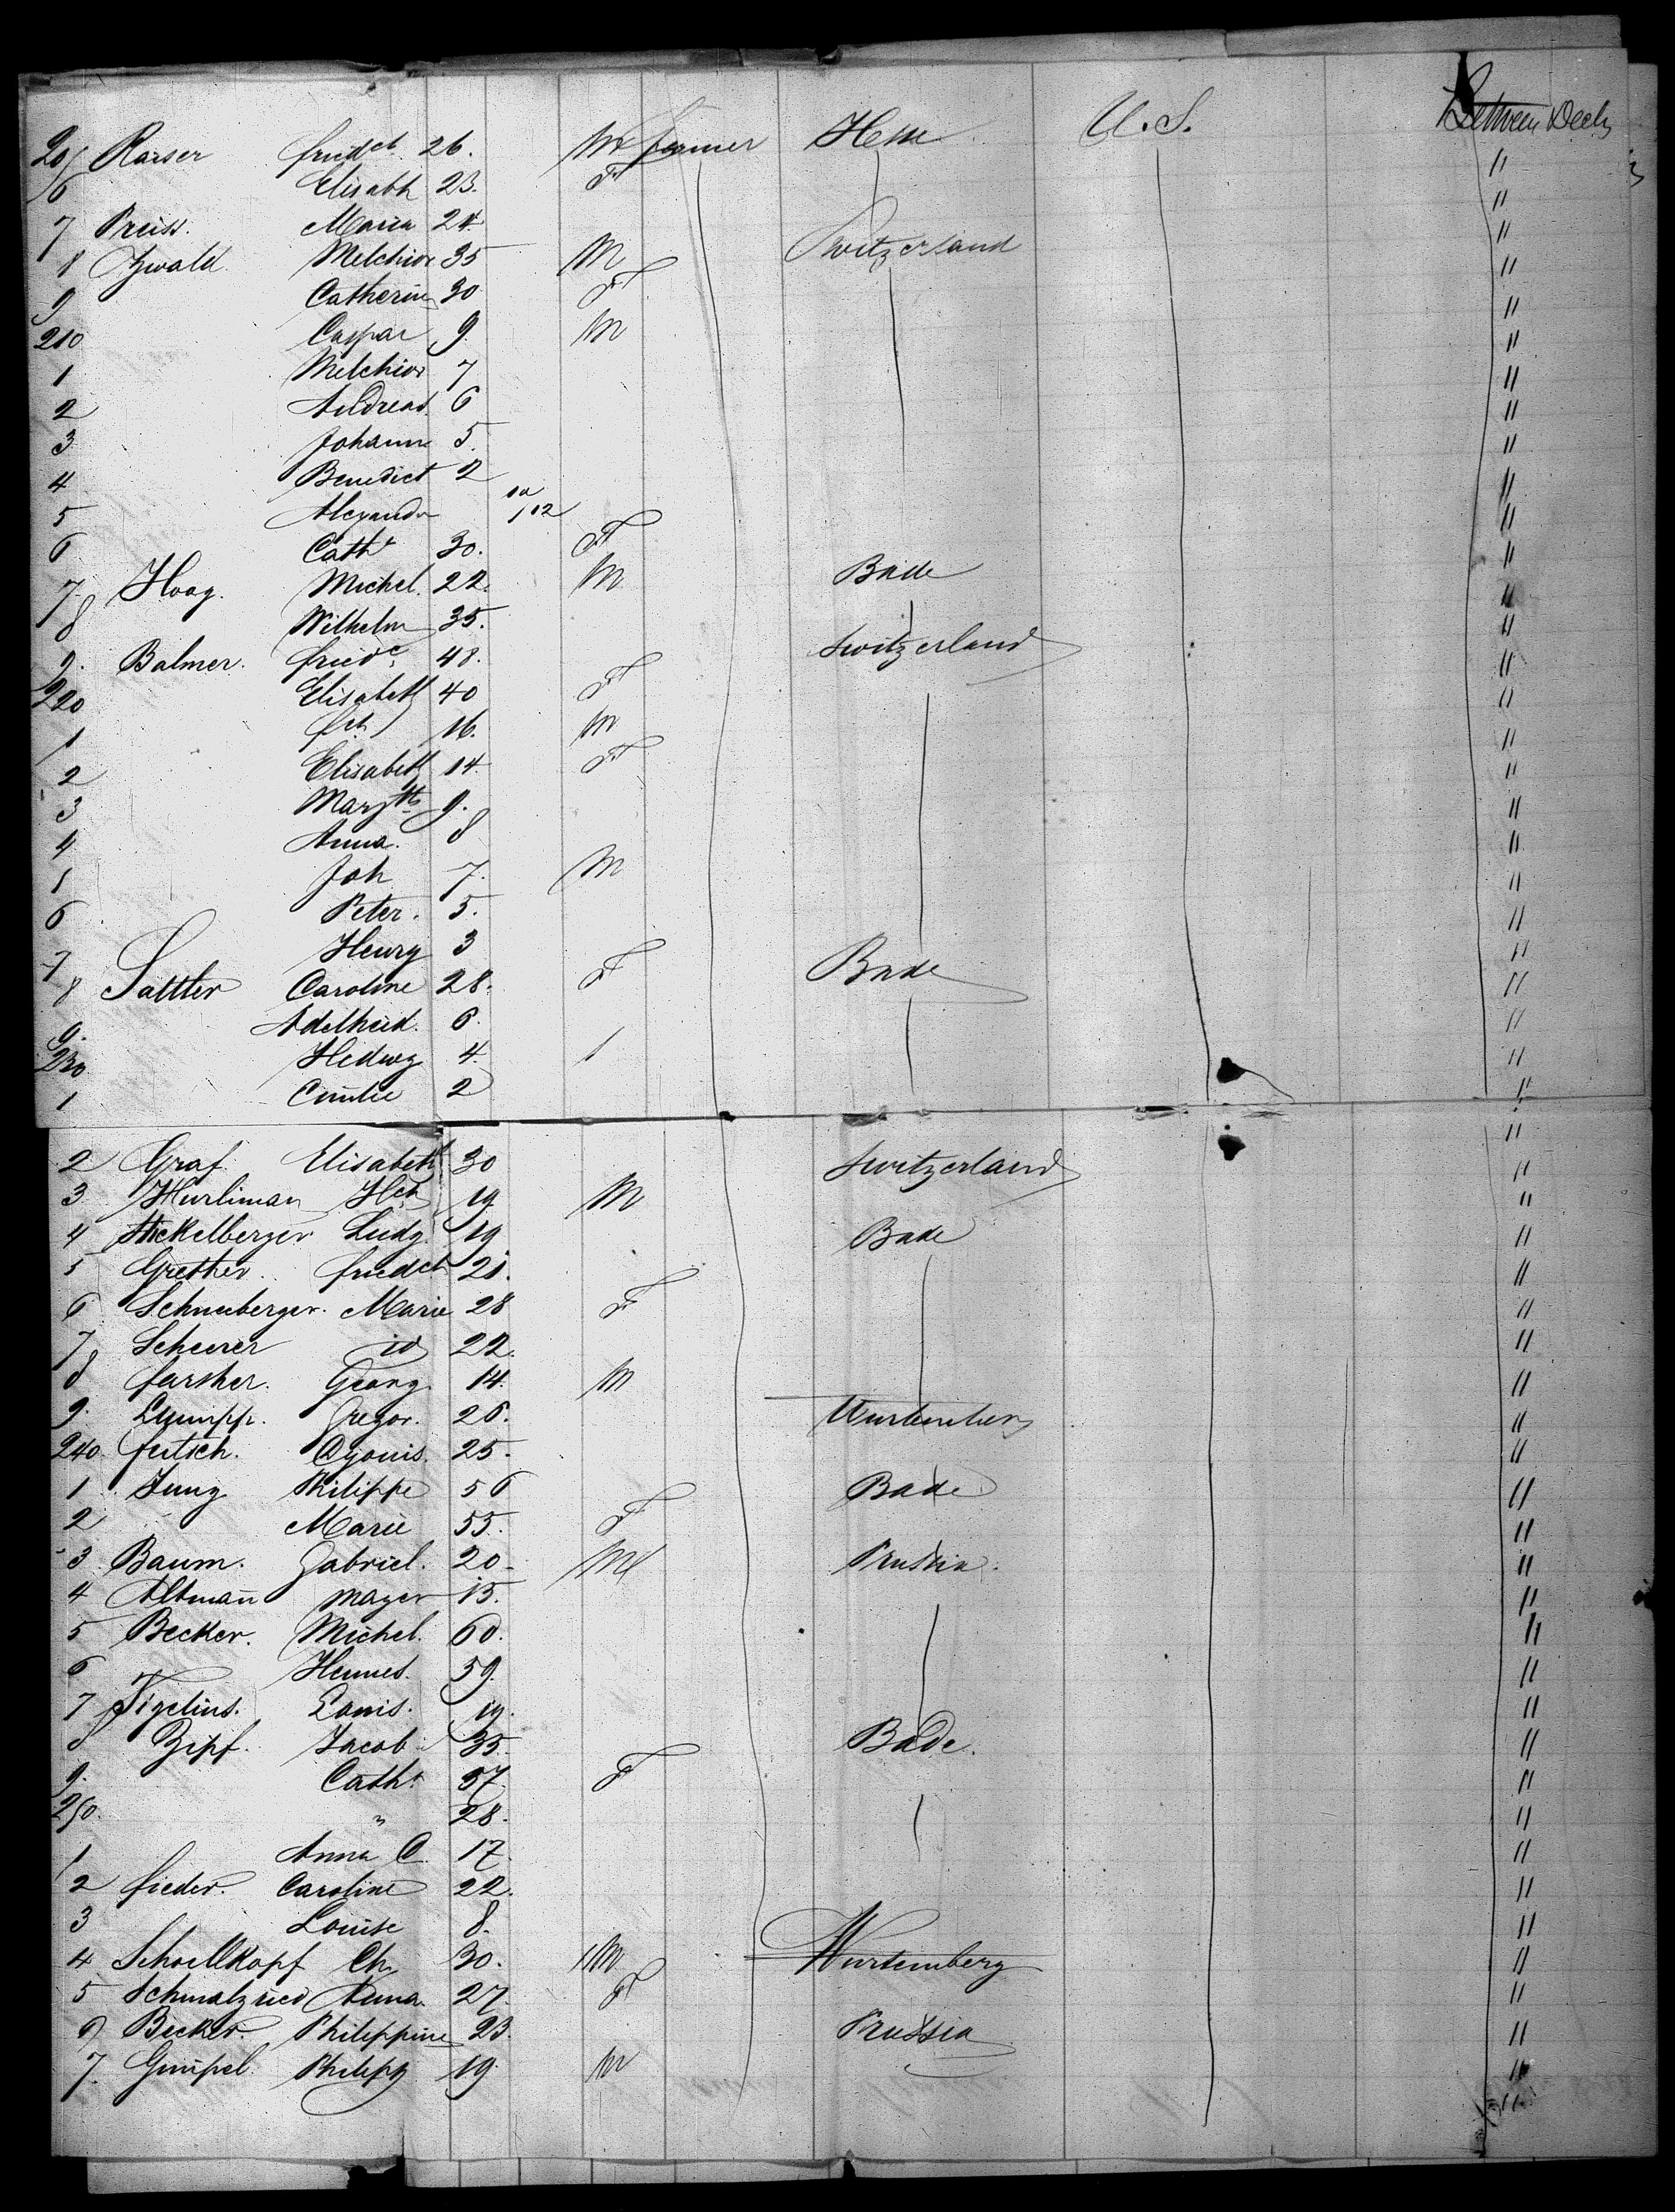 205 Kaiser friedch 26. M farmer Hesse U.S. Between Deck
6 Elisabth 23. F "
7 Preiss. Maria 24 "
8 Zwald Melchior 35 M Switzerland "
9 Catherin 30 F "
210 Caspar 9. M "
1 Melchior 7 "
2 Andreas 6 "
3 Johann 5. "
4 Benedict 2 "
5 Alexandr 10/12 "
6 Cath 30. F "
7 Hoog. Michel. 22. M Bade "
8 Wilhelm 35. "
9. Balmer. friedc 48. Switzerland "
220 Elisabeth 40 F "
1 fch 16. M "
2 Elisabeth 14. F "
3 Margth 9. "
4 Anna. 8 "
5 Joh 7. M "
6 Peter. 5. "
7 Henry 3 "
8 Sattler Caroline 28. F Bade "
9. Adelheid. 6. "
230 Hedwg 4. "
1 2 "
2 Graf Elisabeth 30 Switzerland "
3 Hurliman Hch 19 M "
4 Stickelberger Ludg. 19 Bade "
5 Grether. friedch 21. "
6 Schneeberger. Marie 28 F "
7 Scheerer id 22. "
8 Georg. 14. M "
9. Gregor. 26. Wurtemberg "
240. fritsch. 25. "
1 Jung Philippe 56 Bade "
2 Marie 55. F "
3 Baum. Gabriel. 20 M Prussia. "
4 Altmañ Mayer 15. "
5 Becker. Michel. 60. "
6 Hennes. 59. "
7 Louis. 19. "
8 Zipf. Jacob 35. Bade. "
9. Cath. 37. F "
250. " 28. "
1 Anna C. 17. "
2 fieder. Caroline 22. "
3 Louise 8. "
4 Schoellkopf Ch 30. M Wurtemberg "
5 Schmalzried Anna. 27. F "
6 Becker. Philippine 23. Prussia "
7. Gimpel. Philipp 19 M "